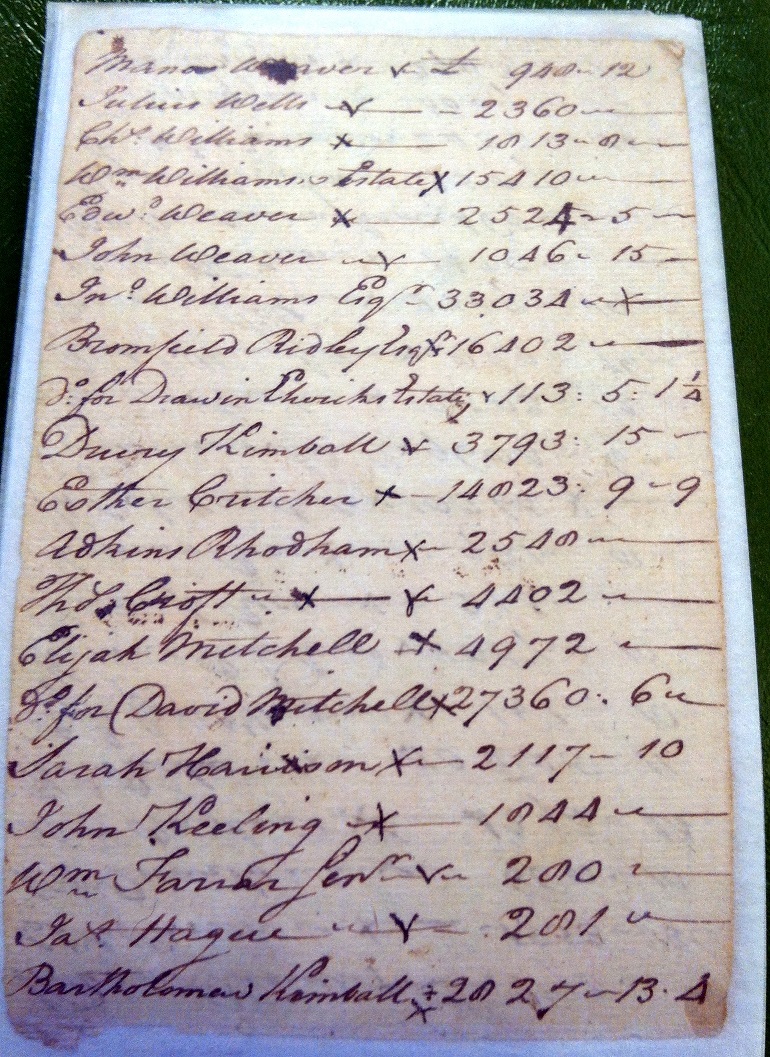 Manoa Weaver £ 948 - 12
Julius Wells x - 2360
Chs. Williams x 1813 - 8
Wm. Williams's Estate x 15410
Edwd. Weaver x 2524 - 5
John Weaver x 1046 - 15
Jno. Williams Esqr. 33034 x
Bromfield Ridley Esqr. x 16402
Do. for Estate x 113 : 5 : 1 1/4
Drury Kimball x 3793 : 15
Esther Critcher x - 14823 : 9 - 9
Adkins Rhodham x 2548
Thos. Croft x x 4402
Elijah Mitchell x 4972
Do. for David Mitchell x 27360 : 6
Sarah Harrison x 2117 - 10
John Keeling x 1844
Wm. Farrar Senr. x 280
Jas. Hague x 281
Bartholomew Kimball x 2827 - 13 . 4